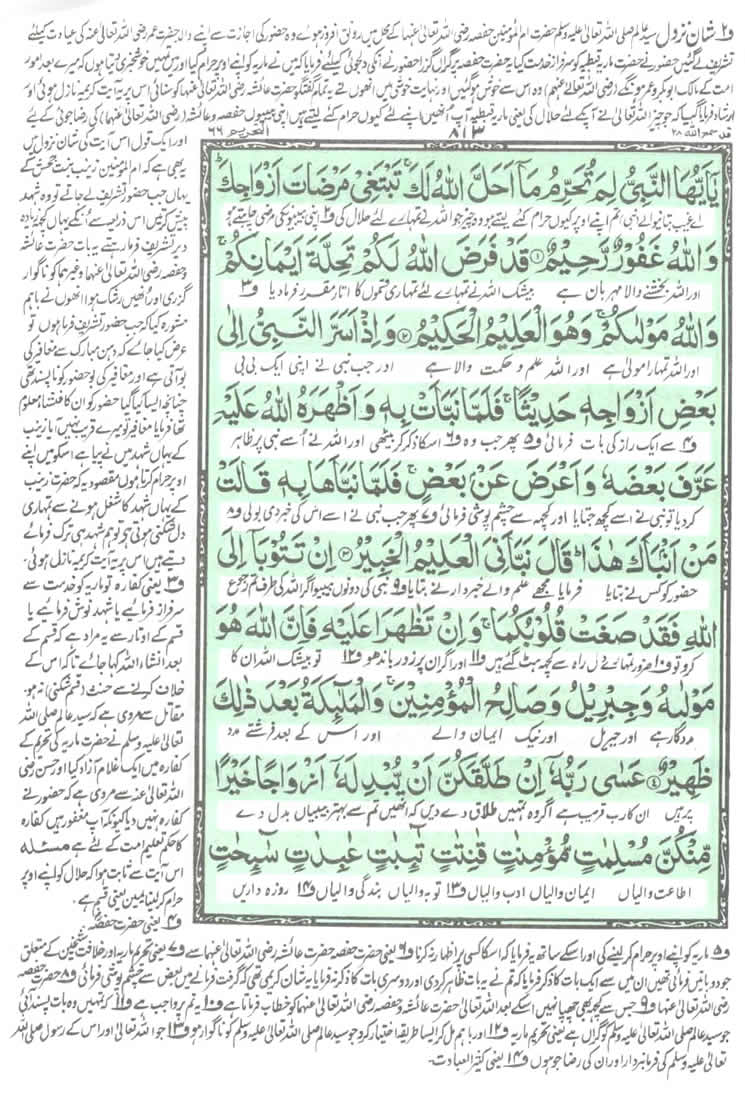 و۲ شان نزول سید عالم صلی اللہ تعالیٰ علیہ وسلم حضرت ام المؤمنین حفصہ رضی اللہ تعالیٰ عنہا کے محل میں رونق افروز ہوئے وہ حضور کی اجازت سے اپنے والد حضرت عمر رضی اللہ تعالیٰ عنہ کی عیادت کیلئے
تشریف لے گئیں حضور نے حضرت ماریہ قبطیہ کو سرفراز خدمت کیا یہ حضرت حفصہ پر گراں گزرا حضور نے انکی دلجوئی کیلئے فرمایا کہ میں نے ماریہ کو اپنے اوپر حرام کیا اور میں تمہیں خوشخبری دیتا ہوں کہ میرے بعد امور
امت کے مالک ابوبکر و عمر ہونگے (رضی اللہ تعالےٰ عنہم) وہ اس سے خوش ہو گئیں اور نہایت خوشی میں انھوں نے یہ تمام گفتگو حضرت عائشہ رضی اللہ تعالیٰ عنہا کو سنائی اس پر یہ آیت کریمہ نازل ہوئی اور
ارشاد فرمایا گیا کہ جو چیز اللہ تعالیٰ نے آپکے لئے حلال کی یعنی ماریہ قبطیہ آپ انھیں اپنے لئے کیوں حرام کئے لیتے ہیں اپنی بیبیوں حفصہ و عائشہ (رضی اللہ تعالیٰ عنہا) کی رضا جوئی کے لئے
قد سمع اللہ ۲۸
۸۱۳
التحریم ۶۶
يٰۤاَيُّهَا النَّبِىُّ لِمَ تُحَرِّمُ مَاۤ اَحَلَّ اللّٰهُ لَكَ ۚ تَبْتَغِىْ مَرْضَاتَ اَزْوَاجِكَ ؕ
اے غیب بتانیوالے نبی تم اپنے اوپر کیوں حرام کئے لیتے ہو وہ چیز جو اللہ نے تمہارے لئے حلال کی و۲ اپنی بیبیوں کی مرضی چاہتے ہو
وَاللّٰهُ غَفُوْرٌ رَّحِيْمٌ ۝۱ قَدْ فَرَضَ اللّٰهُ لَكُمْ تَحِلَّةَ اَيْمَانِكُمْ ۚ
اور اللہ بخشنے والا مہربان ہے بیشک اللہ نے تمہارے لئے تمہاری قسموں کا اتار مقرر فرما دیا و۳
وَاللّٰهُ مَوْلٰىكُمْ ۚ وَهُوَ الْعَلِيْمُ الْحَكِيْمُ ۝۲ وَاِذْ اَسَرَّ النَّبِىُّ اِلٰى
اور اللہ تمہارا مولیٰ ہے اور اللہ علم و حکمت والا ہے اور جب نبی نے اپنی ایک بی بی
بَعْضِ اَزْوَاجِهٖ حَدِيْثًا ۚ فَلَمَّا نَبَّاَتْ بِهٖ وَاَظْهَرَهُ اللّٰهُ عَلَيْهِ
و۴ سے ایک راز کی بات فرمائی و۵ پھر جب وہ و۶ اسکا ذکر کر بیٹھی اور اللہ نے اُسے نبی پر ظاہر
عَرَّفَ بَعْضَهٗ وَاَعْرَضَ عَنْۢ بَعْضٍ ۚ فَلَمَّا نَبَّاَهَا بِهٖ قَالَتْ
کر دیا تو نبی نے اسے کچھ جتایا اور کچھ سے چشم پوشی فرمائی و۷ پھر جب نبی نے اسے اس کی خبر دی بولی و۸
مَنْ اَنْۢبَاَكَ هٰذَا ؕ قَالَ نَبَّاَنِىَ الْعَلِيْمُ الْخَبِيْرُ ۝۳ اِنْ تَتُوْبَاۤ اِلَى
حضور کو کس نے بتایا فرمایا مجھے علم والے خبردار نے بتایا و۹ نبی کی دونوں بیبیو اگر اللہ کی طرف تم رجوع
اللّٰهِ فَقَدْ صَغَتْ قُلُوْبُكُمَا ۚ وَاِنْ تَظٰهَرَا عَلَيْهِ فَاِنَّ اللّٰهَ هُوَ
کرو تو و۱۰ ضرور تمہارے دل راہ سے کچھ ہٹ گئے ہیں و۱۱ اور اگر ان پر زور باندھو و۱۲ تو بیشک اللہ ان کا
مَوْلٰىهُ وَجِبْرِيْلُ وَصَالِحُ الْمُؤْمِنِيْنَ ۚ وَالْمَلٰٓئِكَةُ بَعْدَ ذٰلِكَ
مددگار ہے اور جبریل اور نیک ایمان والے اور اس کے بعد فرشتے مدد
ظَهِيْرٌ ۝۴ عَسٰى رَبُّهٗۤ اِنْ طَلَّقَكُنَّ اَنْ يُّبْدِلَهٗۤ اَزْوَاجًا خَيْرًا
پر ہیں ان کا رب قریب ہے اگر وہ تمہیں طلاق دے دیں کہ انھیں تم سے بہتر بیبیاں بدل دے
مِّنْكُنَّ مُسْلِمٰتٍ مُّؤْمِنٰتٍ قٰنِتٰتٍ تٰٓئِبٰتٍ عٰبِدٰتٍ سٰٓئِحٰتٍ
اطاعت والیاں ایمان والیاں ادب والیاں و۱۳ توبہ والیاں بندگی والیاں و۱۴ روزہ داریں
اور ایک قول اس آیت کی شان نزول میں
یہ بھی ہے کہ ام المؤمنین زینب بنت جحش کے
یہاں جب حضور تشریف لے جاتے تو وہ شہد
پیش کرتیں اس ذریعہ سے اُنکے یہاں کچھ زیادہ
دیر تشریف فرما رہتے یہ بات حضرت عائشہ
و حفصہ رضی اللہ تعالیٰ عنہما وغیرہما کو ناگوار
گزری اور انھیں رشک ہوا انھوں نے باہم
مشورہ کیا کہ جب حضور تشریف فرما ہوں تو
عرض کیا جائے کہ دہن مبارک سے مغافیر کی
بو آتی ہے اور مغافیر کی بو حضور کو ناپسند تھی
چنانچہ ایسا کیا گیا حضور کو ان کا منشا معلوم
تھا فرمایا مغافیر تو میرے قریب نہیں آیا زینب
کے یہاں شہد میں نے پیا ہے اسکو میں اپنے
اوپر حرام کرتا ہوں مقصود یہ کہ حضرت زینب
کے یہاں شہد کا شغل ہونے سے تمہاری
دل شکنی ہوتی ہے تو ہم شہد ہی ترک فرمائے
دیتے ہیں اس پر یہ آیت کریمہ نازل ہوئی۔
و۳ یعنی کفارہ تو ماریہ کو خدمت سے
سرفراز فرمائیے یا شہد نوش فرمائیے یا
قسم کے اوتار سے یہ مراد ہے کہ قسم کے
بعد انشاء اللہ کہا جائے تاکہ اس کے
خلاف کرنے سے حنث (قسم شکنی) نہ ہو۔
مقاتل سے مروی ہے کہ سید عالم صلی اللہ
تعالیٰ علیہ وسلم نے حضرت ماریہ کی تحریم کے
کفارہ میں ایک غلام آزاد کیا اور حسن رضی
اللہ تعالیٰ عنہ سے مروی ہے کہ حضور نے
کفارہ نہیں دیا کیونکہ آپ مغفور ہیں کفارہ
کا حکم تعلیم امت کے لئے ہے مسئلہ
اس آیت سے ثابت ہوا کہ حلال کو اپنے اوپر
حرام کر لینا یمین یعنی قسم ہے۔
و۴ یعنی حضرت حفصہ
و۵ ماریہ کو اپنے اوپر حرام کر لینے کی اور اسکے ساتھ یہ فرمایا کہ اسکا کسی پر اظہار نہ کرنا و۶ یعنی حضرت حفصہ حضرت عائشہ رضی اللہ تعالیٰ عنہا سے و۷ یعنی تحریم ماریہ اور خلافت شیخین کے متعلق
جو دو باتیں فرمائی تھیں ان میں سے ایک بات کا ذکر فرمایا کہ تم نے یہ بات ظاہر کر دی اور دوسری بات کا ذکر نہ فرمایا یہ شان کریمی تھی کہ گرفت فرمانے میں بعض سے چشم پوشی فرمائی و۸ حضرت حفصہ
رضی اللہ تعالیٰ عنہا و۹ جس سے کچھ بھی چھپا نہیں اسکے بعد اللہ تعالیٰ حضرت عائشہ و حفصہ رضی اللہ تعالیٰ عنہما کو خطاب فرماتا ہے و۱۰ یہ تم پر واجب ہے و۱۱ کہ تمہیں وہ بات پسند آئی
جو سید عالم صلی اللہ تعالیٰ علیہ وسلم کو گراں ہے یعنی تحریم ماریہ و۱۲ اور باہم مل کر ایسا طریقہ اختیار کرو جو سید عالم صلی اللہ تعالیٰ علیہ وسلم کو ناگوار ہو و۱۳ جو اللہ تعالیٰ اور اس کے رسول صلی اللہ
تعالیٰ علیہ وسلم کی فرمانبردار اور ان کی رضا جو ہوں و۱۴ یعنی کثیر العبادت۔